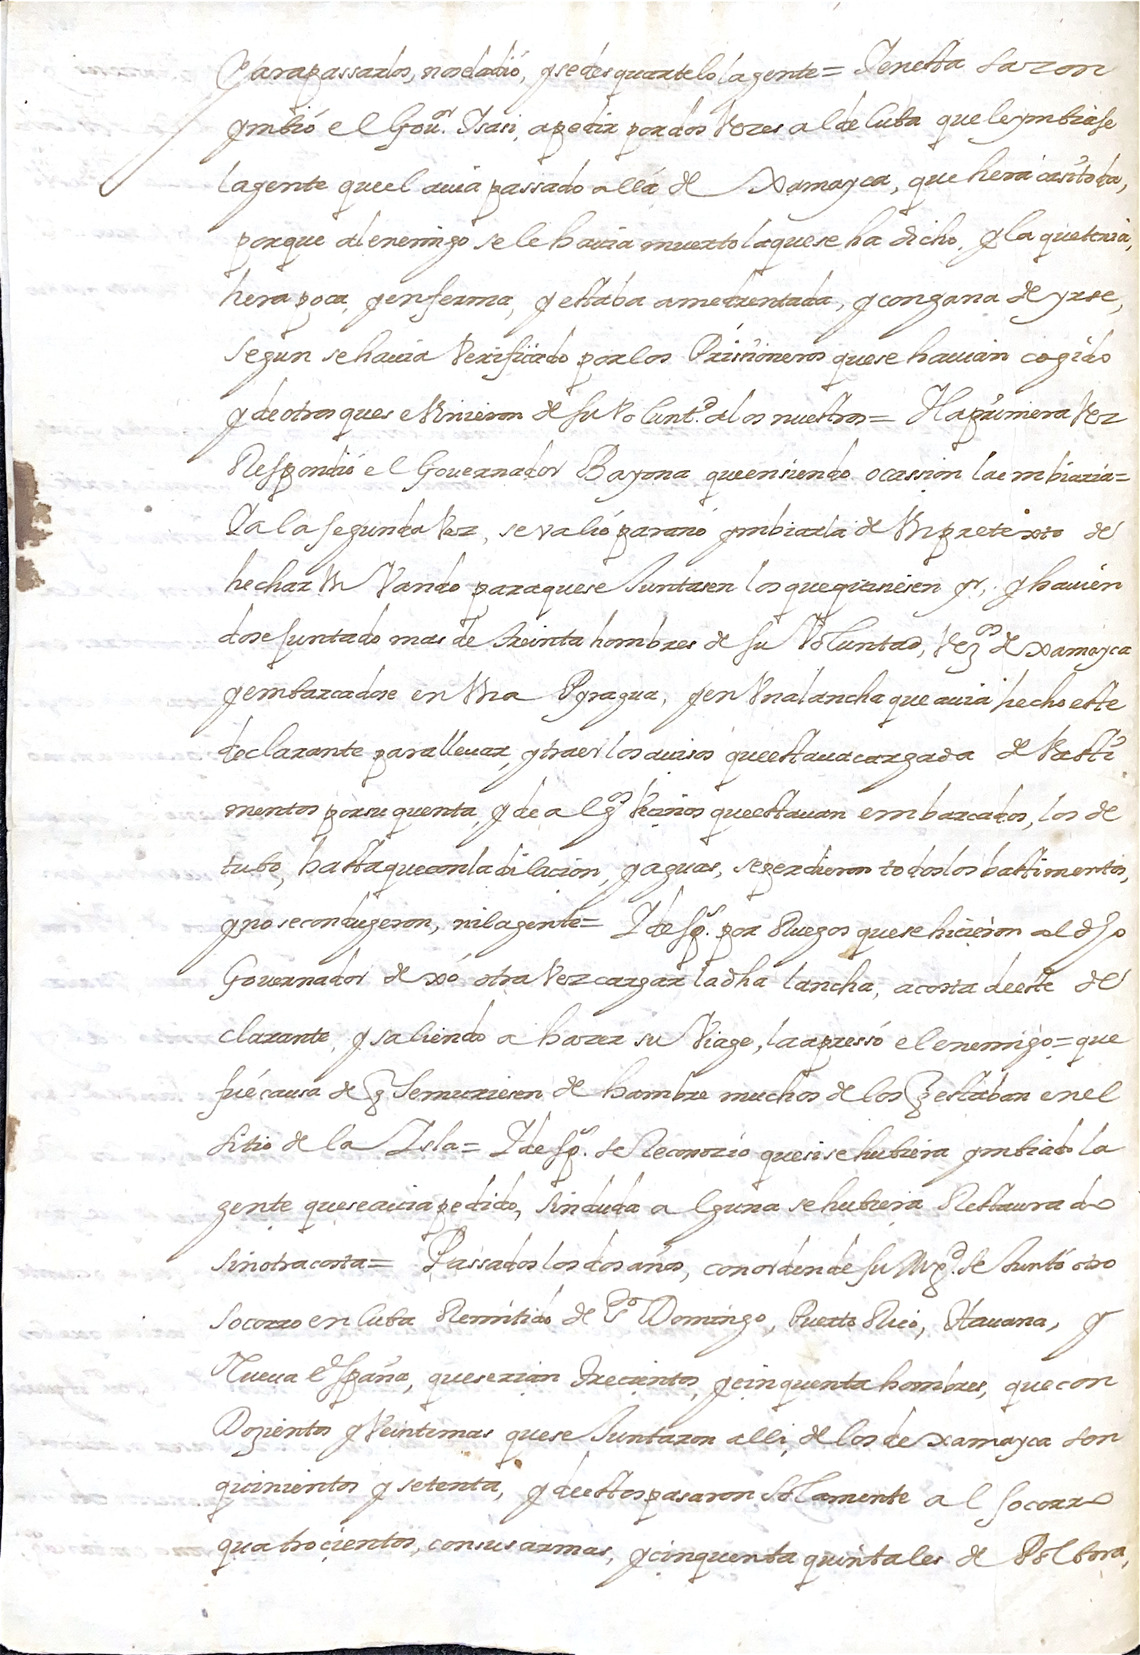 Para passarlos, no se la dió, y se desquarteló la gente = Y en esta sazon
ymbió el Gouor. Isasi, a pedir por dos Vezes al de Cuba que le ymbiase
la gente que el auia passado allá de Xamayca, que hera casi toda,
porque al enemigo se le hauia muerto la que se ha dicho, y la que tenia,
hera poca, y enferma, y estaba amedrentada, y con gana de yrse,
segun se hauia Verificado por los Prisioneros que se hauian cogido
y de otros que se Vinieron de su Volunt.d a los nuestros = Y la primera Vez
Respondió el Gouernador Bayona que en siendo ocassion la embiaria =
Y a la segunda Vez, se valió para no ymbiarla de Vn pretexto de
hechar Vn Vando para que se Juntasen los que quisiesen yr, y hauien
dose Juntado mas de treinta hombres de su Voluntad, Vezos de Xamayca
y embarcadose en Vna Pyragua, y en Vna lancha que auia hecho este
declarante para lleuar, y traer los auisos que estaua cargada de Basti
mentos por su quenta, y de algos Vecinos que estauan embarcados, los de
tubo, hasta que con la dilacion, y aguas, se perdieron todos los bastimentos,
y no se condugeron, ni la gente = Y desps. por Ruegos que se hicieron al dho
Gouernador dexó otra Vez cargar la dha lancha, a costa de este de
clarante, y saliendo a hazer su Viage, la apressó el enemigo = que
fué causa de q Se muriesen de hambre muchos de los q estaban en el
sitio de la Isla = Y desps. se Reconozio que si se hubiera ymbiado la
gente que se auia pedido, sin duda alguna se hubiera Restaurado
sin otra costa = Passados los dos años, con orden de su Mgd. se Juntó otro
socorro en Cuba Remitido de Sto Domingo, Puerto Rico, Hauana, y
Nueua España, que serian trecientos, y cinquenta hombres, que con
Dozientos y Veinte mas que se Juntaron alli, de los de Xamayca son
quinientos y setenta, y de estos pasaron solamente al socorro
quatrocientos, con sus armas, y cinquenta quintales de Polbora,